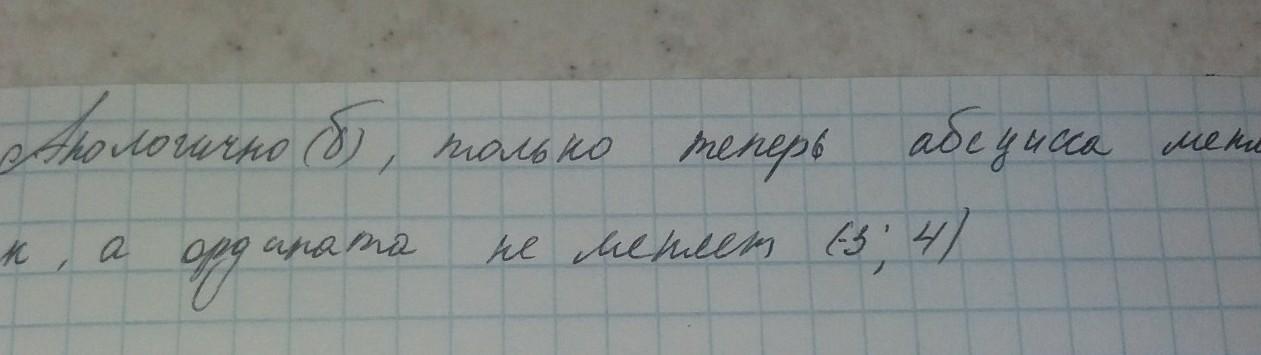 Аналогично (б), только теперь абсцисса меня
к, а ордината не меняет (-3; 4)